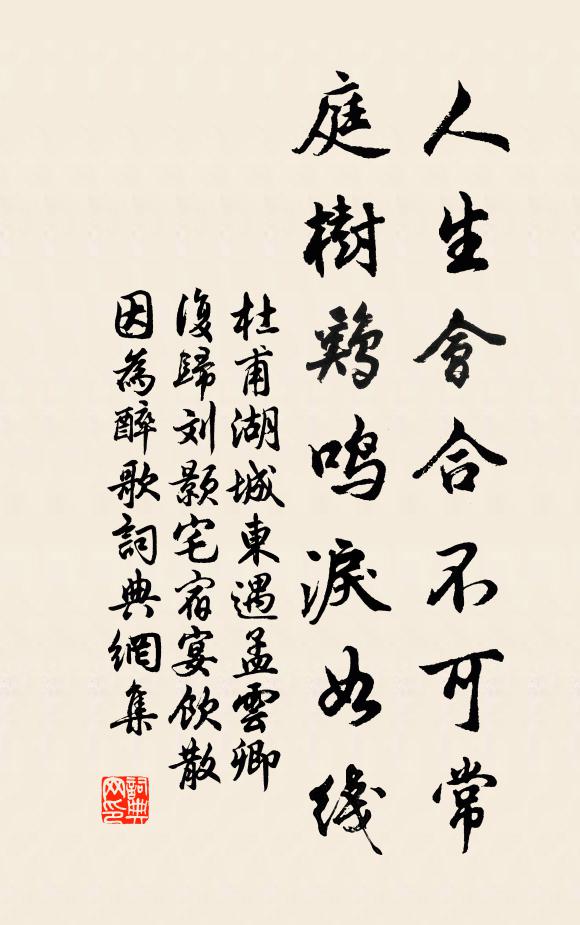 人生會合不可常
庭樹鷄鳴淚如线
杜甫湖城東遇孟雲卿
復歸刘颢宅宿宴飲散
因為醉歌詞典網集
詞典
网印